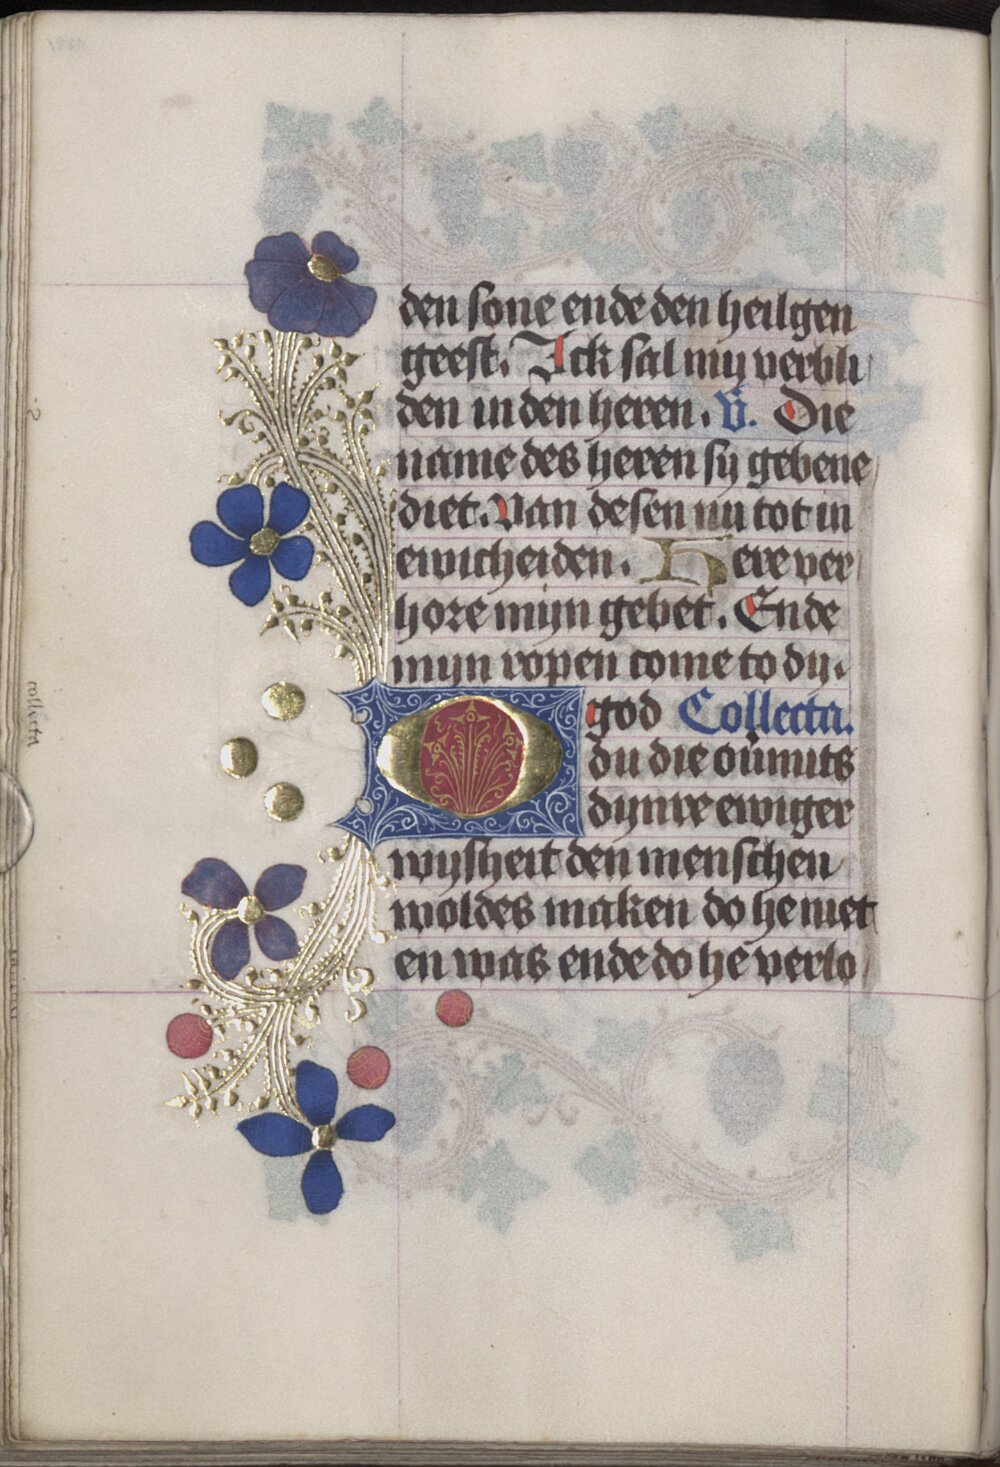 den sone ende den heilgen
geest. Ick sal my verbli
den in den heren. V. Die
name des heren sy gebene
diet. Van desen nu tot in
ewicheiden. Here ver
hore mijn gebet. Ende
mijn ropen come to dy.
O god Collecta.
du die oūmits
dynre ewiger
wysheit den menschen
woldes maken do he niet
en was ende do he verlo
collecta